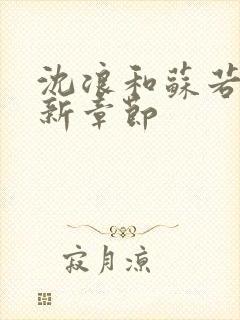 沈浪和蘇若
新章節
寂月凉